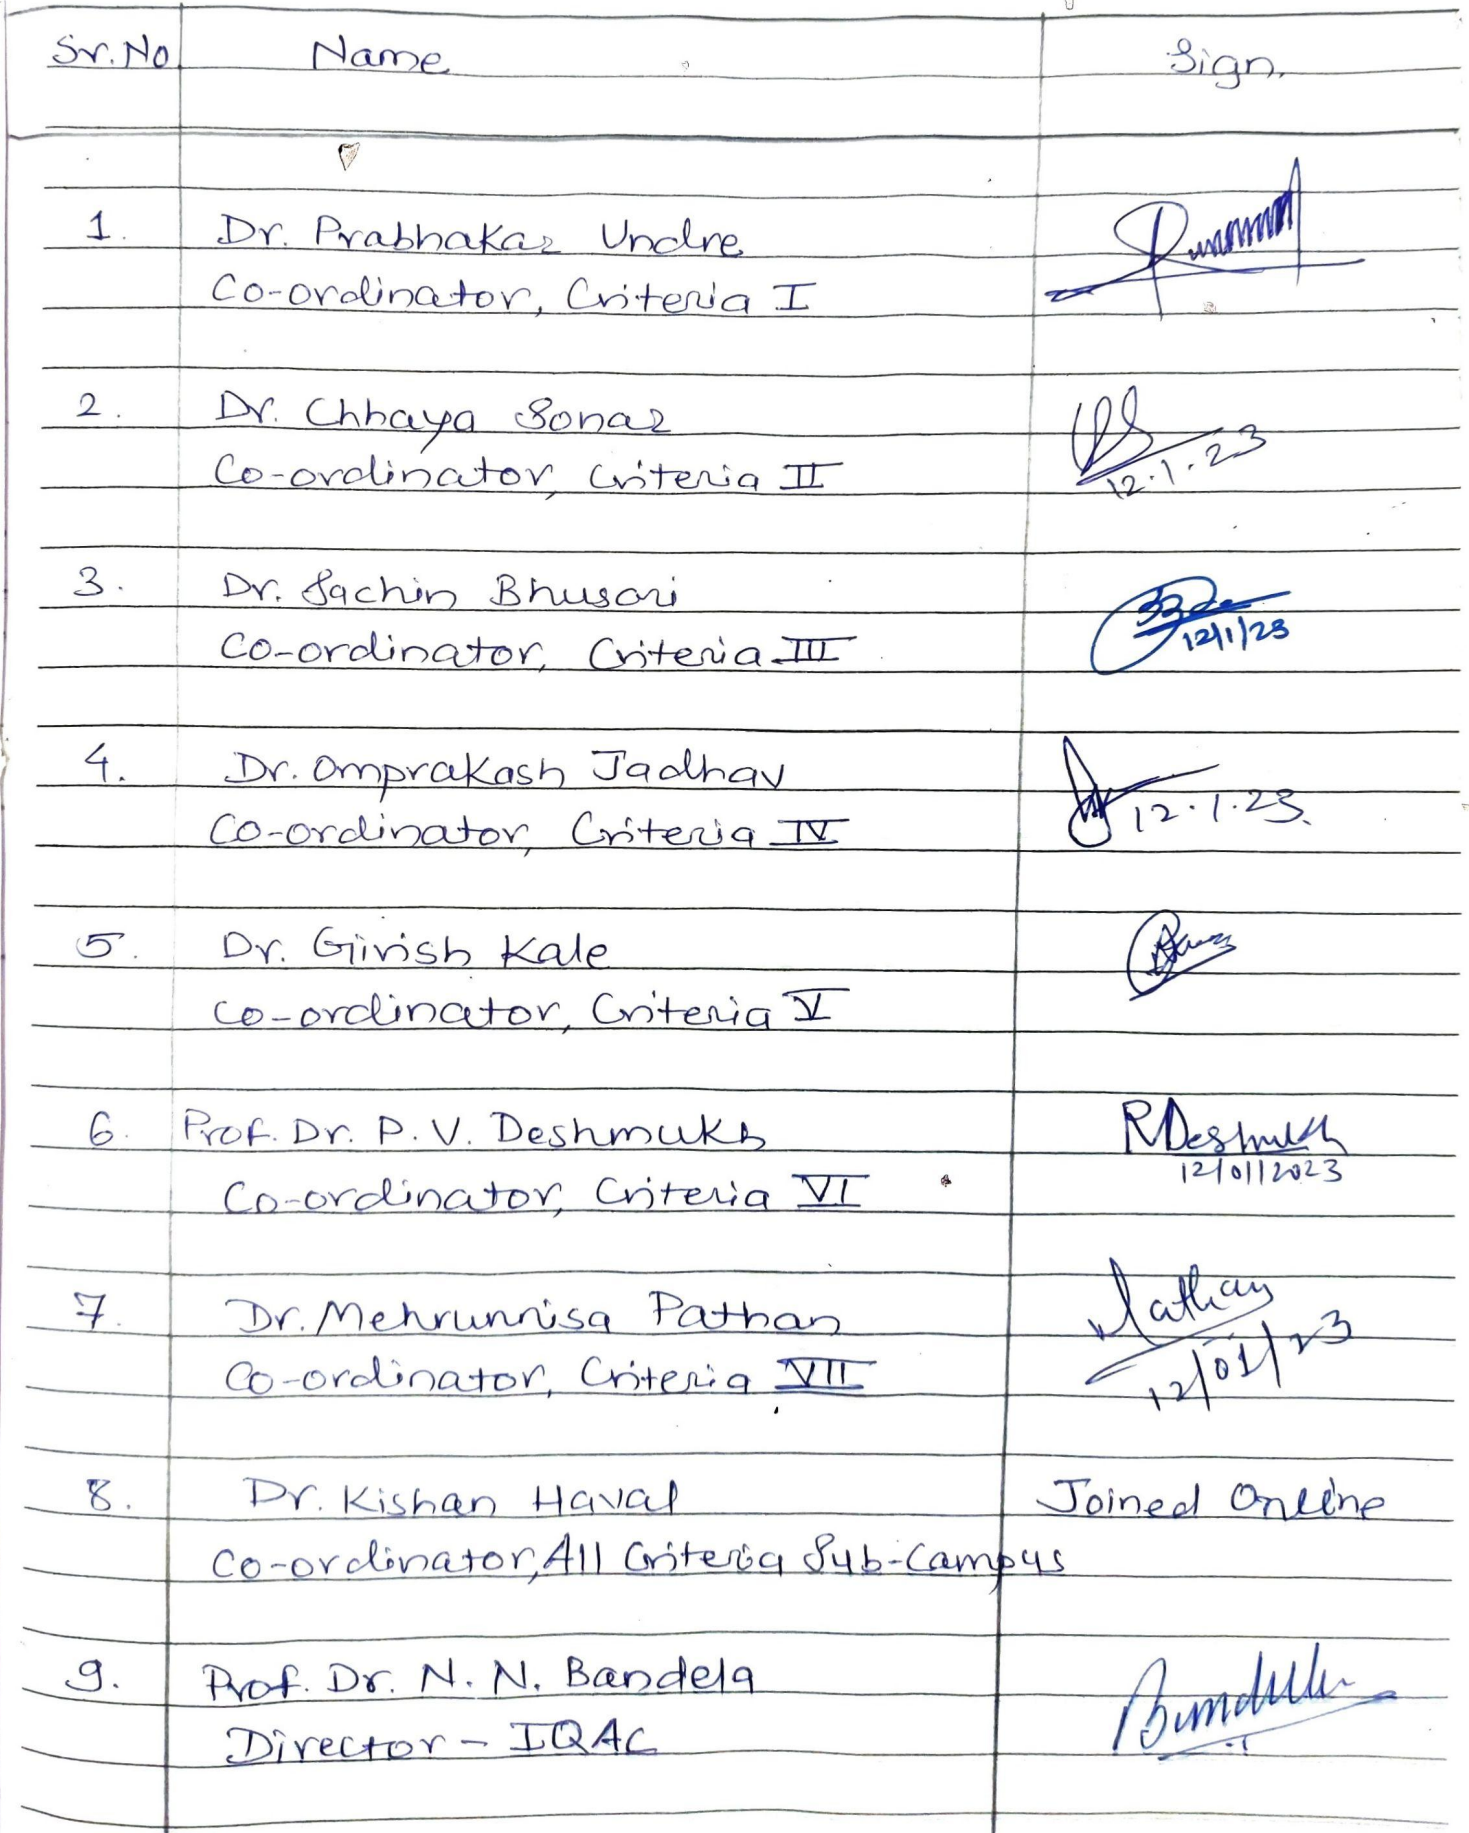 Sr.No Name Sign.
1. Dr. Prabhakar Undre
Co-ordinator, Criteria I
2. Dr. Chhaya Sonar
Co-ordinator, Criteria II
12.1.23
3. Dr. Sachin Bhusari
Co-ordinator, Criteria III
12/1/23
4. Dr. Omprakash Jadhav
12.1.23.
Co-ordinator, Criteria IV
5. Dr. Girish Kale
Co-ordinator, Criteria V
6. Prof. Dr. P. V. Deshmukh RDeshmukh
12/01/2023
Co-ordinator, Criteria VI
7. Dr. Mehrunnisa Pathan Pathan
Co-ordinator, Criteria VII 12/01/23
8. Dr. Kishan Haval Joined Online
Co-ordinator, All Criteria Sub-Campus
9. Prof. Dr. N. N. Bandela
Director - IQAC